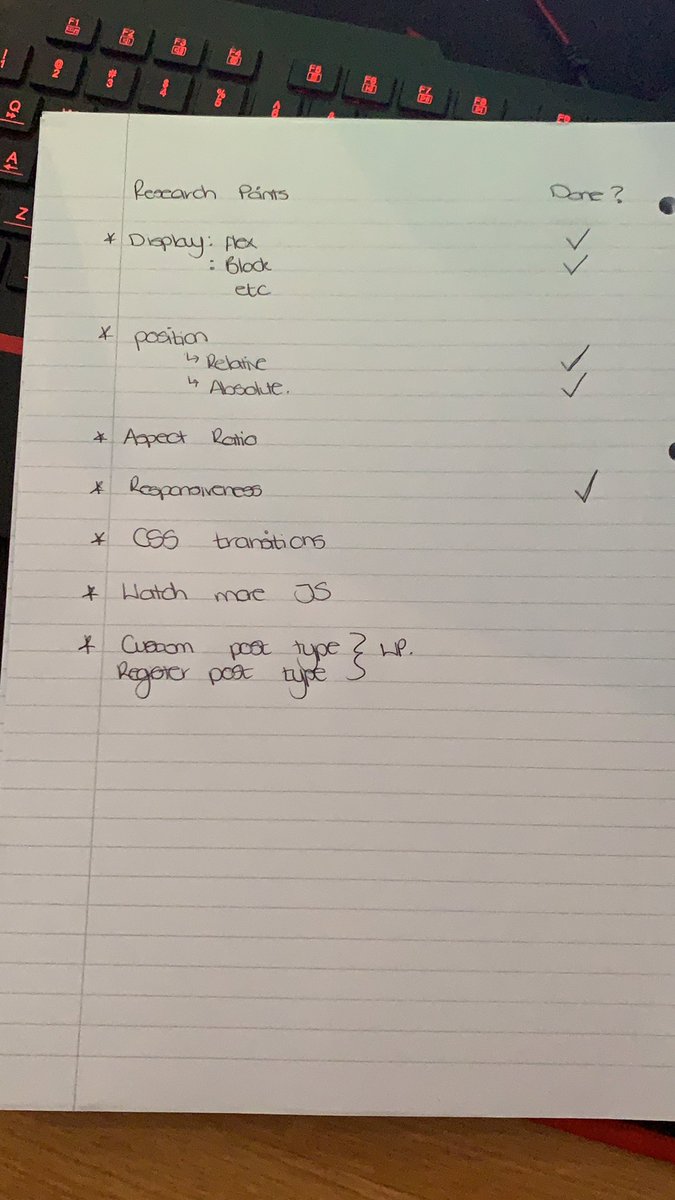 F1 F2 F3 F4 F5 F6 F7 F8 F9
! 1 @ 2 # 3 $ 4 % 5 6
Q
A
Z
Research Points Done?
* Display: flex ✓
: Block ✓
etc
* position
↳ Relative ✓
↳ Absolute. ✓
* Aspect Ratio
* Responsiveness ✓
* CSS transitions
* Watch more JS
* Custom post type } WP.
Register post type